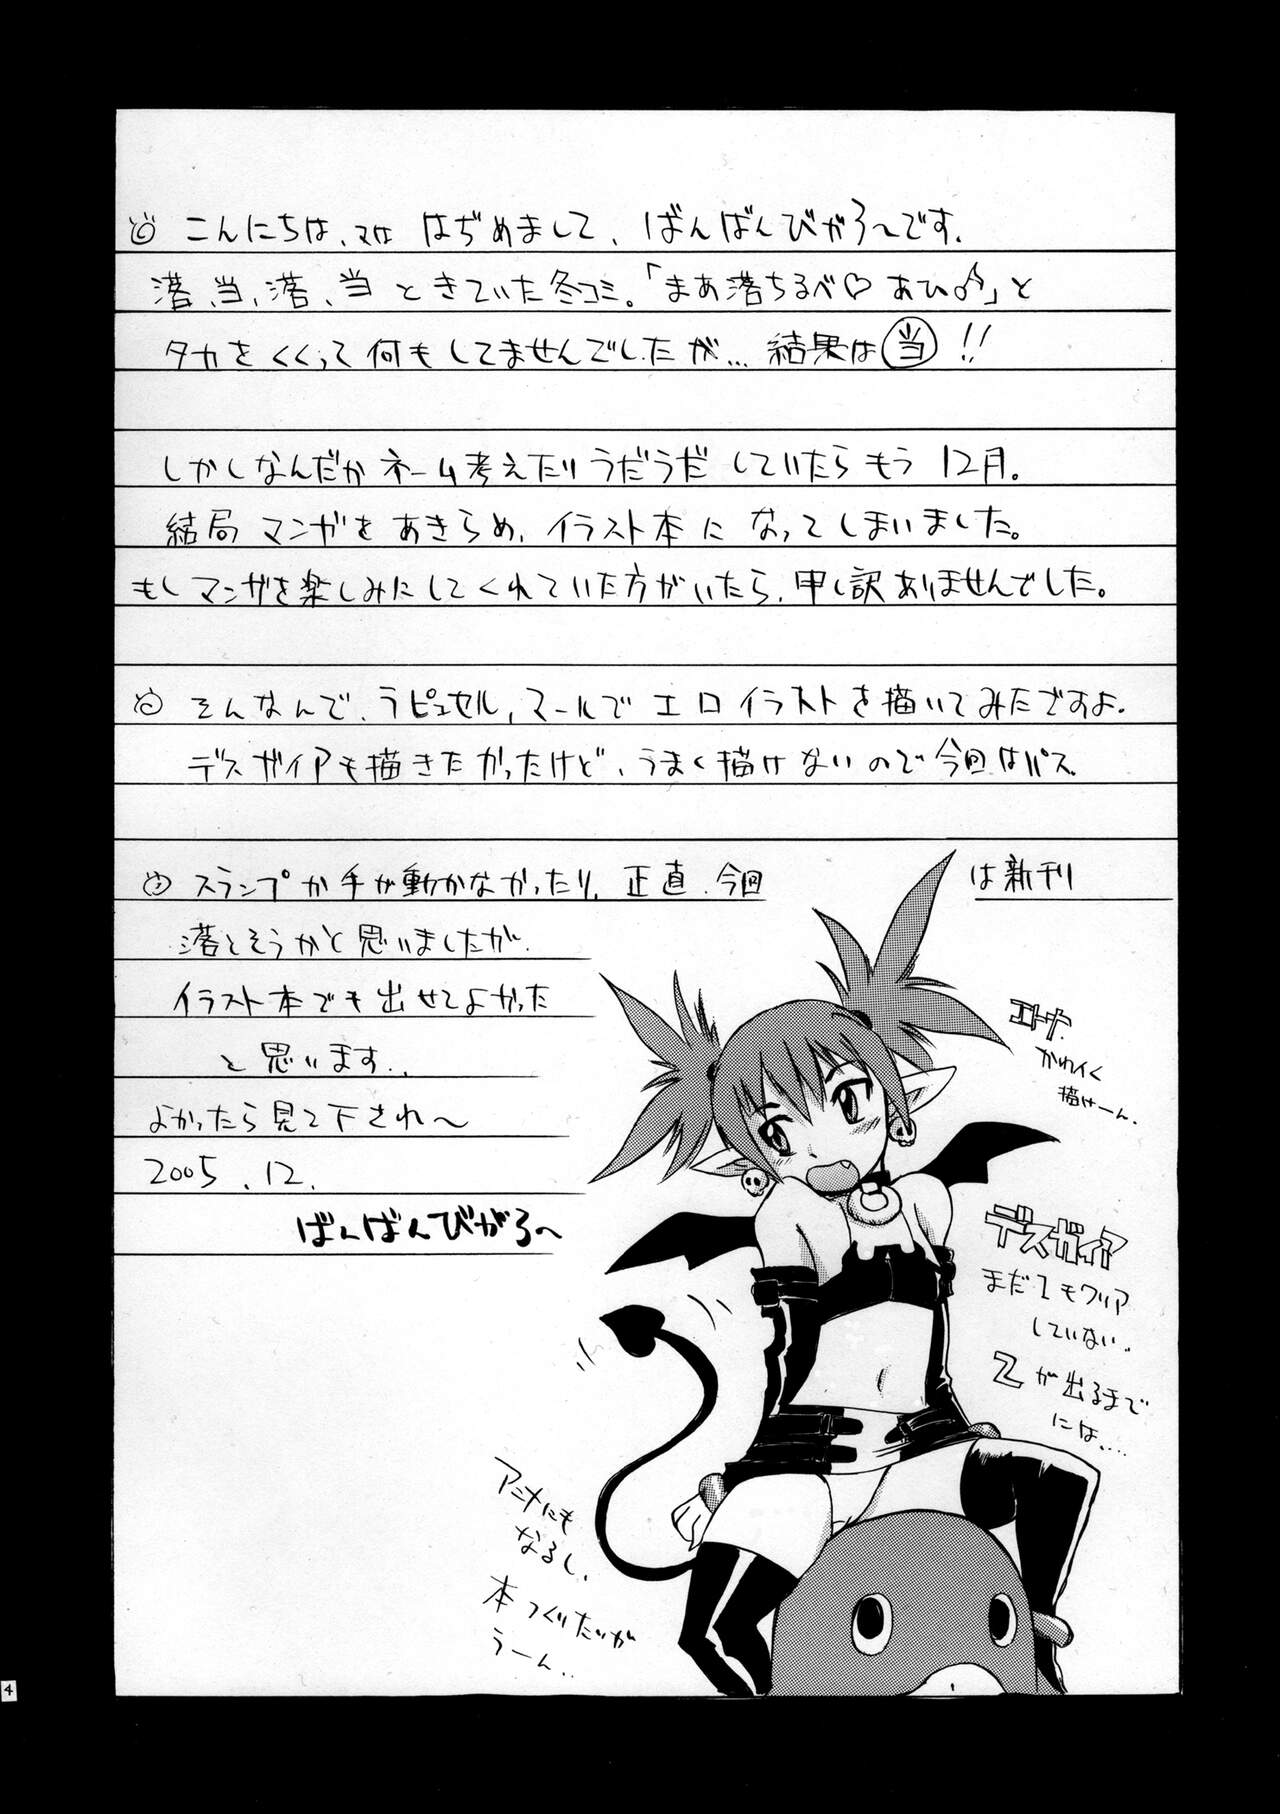 こんにちは、マは はぢめまして、ばんばんびがろ〜です。
落、当、落、当ときていた冬コミ。「まあ落ちるべ♡あひ♂」と
タカをくくって何もしてませんでしたが... 結果は当!!
しかしなんだかネーム考えたりうだうだしていたらもう12月。
結局マンガをあきらめ、イラスト本になってしまいました。
もしマンガを楽しみにしてくれていた方がいたら、申し訳ありませんでした。
そんなんで、ラピュセル、マールでエロイラストを描いてみたですよ。
デスガイアも描きたかったけど、うまく描けないので今回はパス。
スランプか手が動かなかったり、正直、今回は新刊
落とそうかと思いましたが、
イラスト本でも出せてよかった
と思います..
よかったら見て下され〜
2005.12.
ばんばんびがろ〜
エトナ
かわイく
描けーん。
デスガイア
まだ1もクリア
していない..
2が出るまで
にな....
アニメにも
なるし、
本つくりたいが
うーん..
4